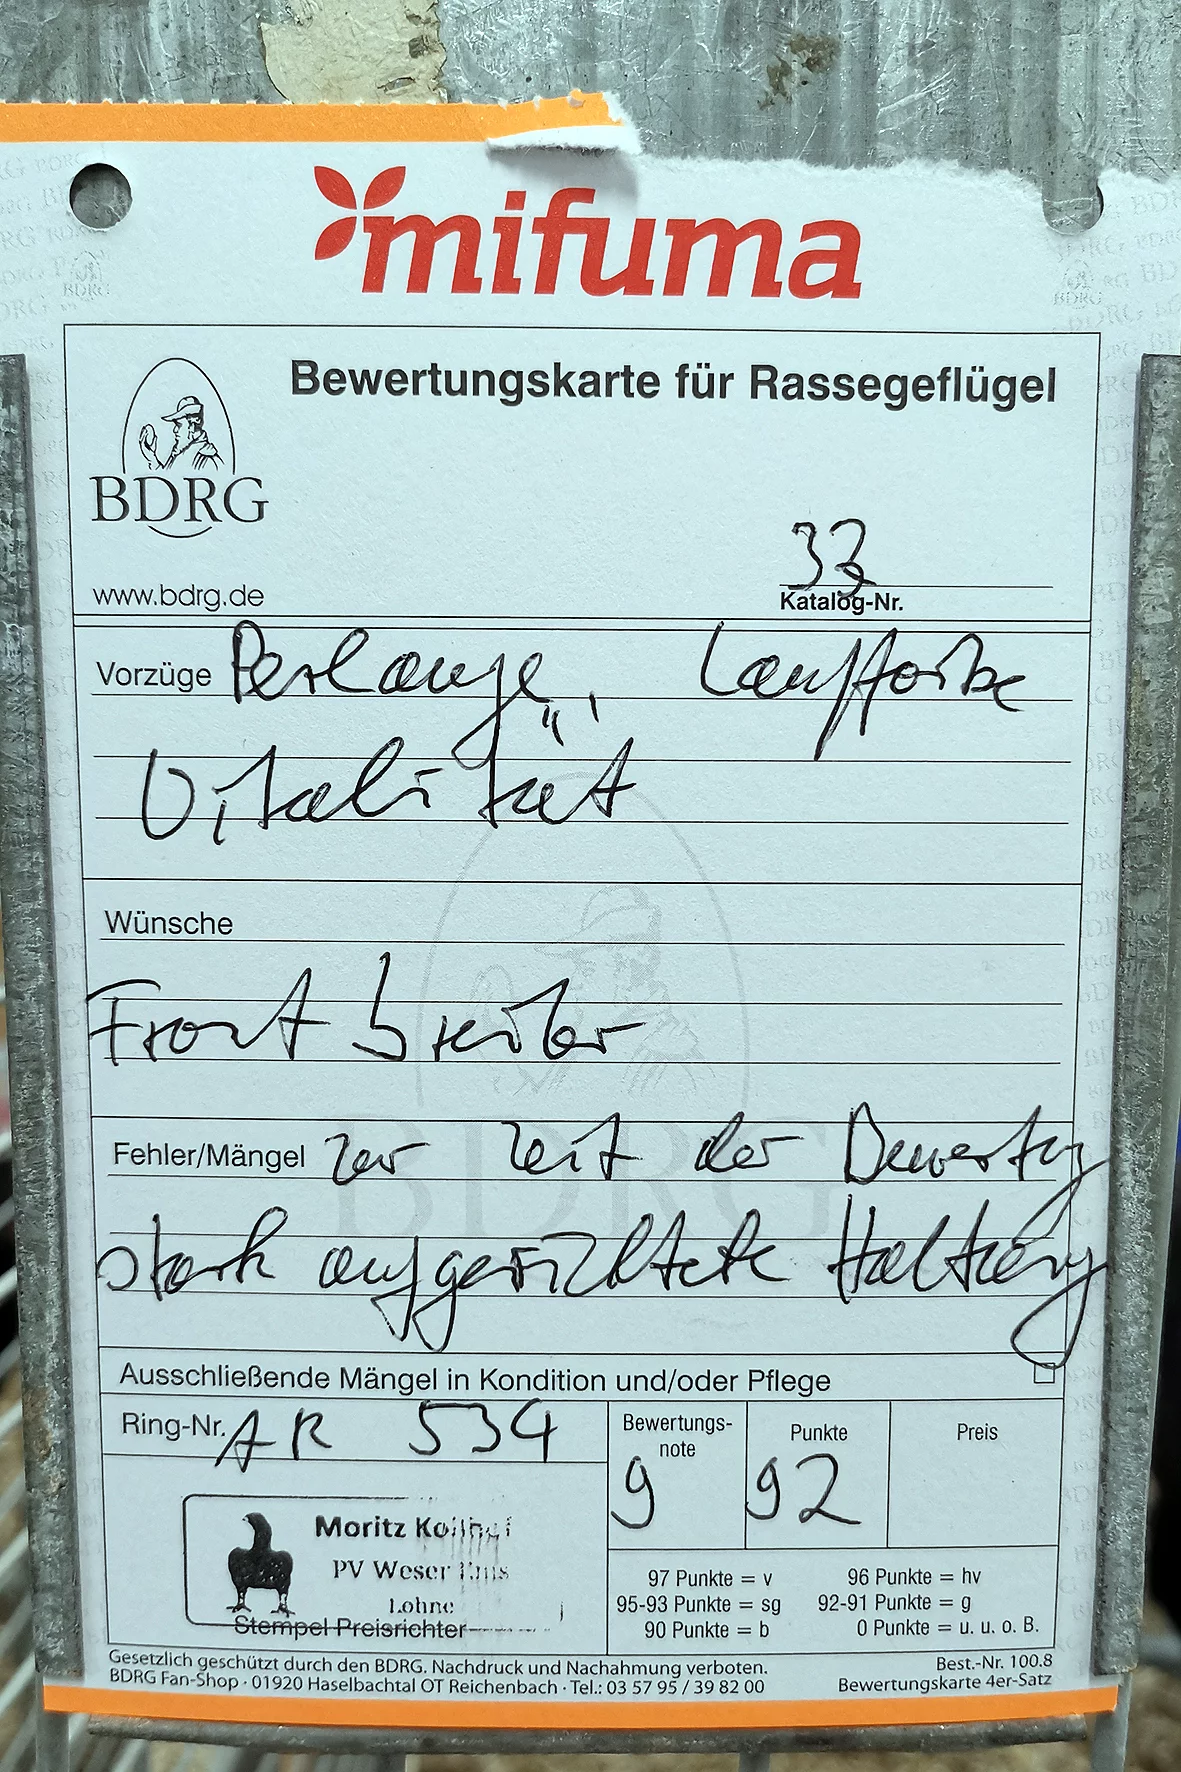 mifuma
Bewertungskarte für Rassegeflügel
BDRG
www.bdrg.de
33
Katalog-Nr.
Vorzüge Perlauge, Lauffarbe
Vitalität
Wünsche
Front breiter
Fehler/Mängel zur Zeit der Bewertung
stark aufgerichtete Haltung
Ausschließende Mängel in Kondition und/oder Pflege
Ring-Nr. AR 534
Bewertungs-
note
9
Punkte
92
Preis
Moritz
PV Weser Ems
Lohne
Stempel Preisrichter
97 Punkte = v 96 Punkte = hv
95-93 Punkte = sg 92-91 Punkte = g
90 Punkte = b 0 Punkte = u. u. o. B.
Gesetzlich geschützt durch den BDRG. Nachdruck und Nachahmung verboten.
BDRG Fan-Shop · 01920 Haselbachtal OT Reichenbach · Tel.: 03 57 95 / 39 82 00
Best.-Nr. 100.8
Bewertungskarte 4er-Satz